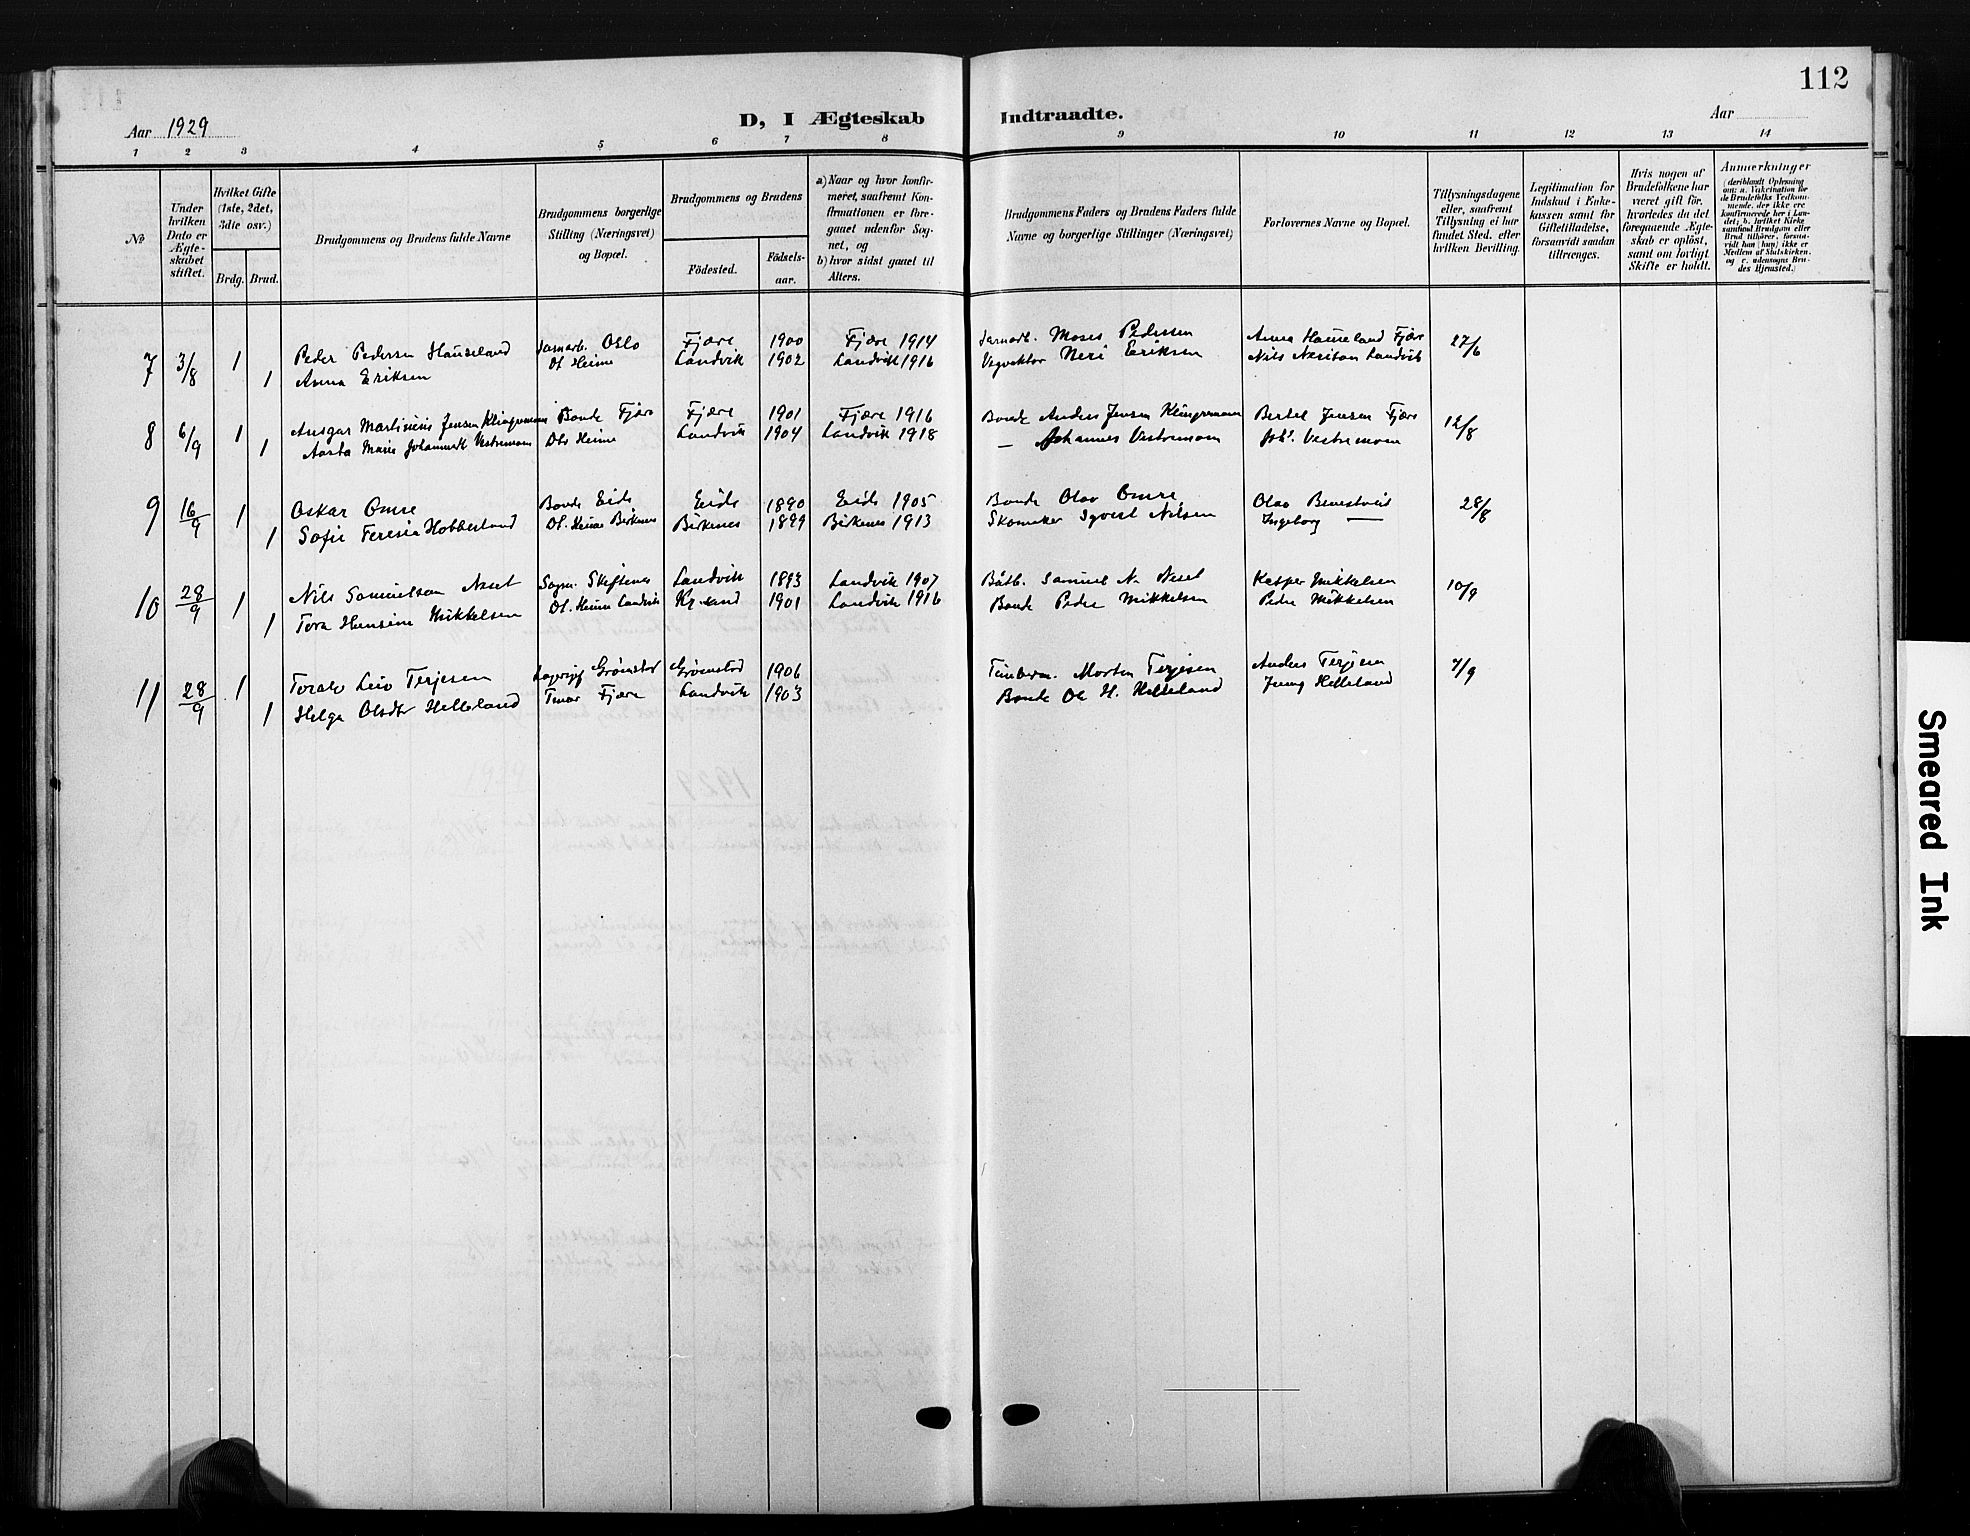 112
Aar 1929
D, I Ægteskab Indtraadte.
Aar
1 2 3 4 5 6 7 8 9 10 11 12 13 14
No
Under hvilken Dato er Ægteskabet stiftet.
Hvilket Gifte (1ste, 2det, 3die osv.)
Brdg. Brud.
Brudgommens og Brudens fulde Navne
Brudgommens borgerlige Stilling (Næringsvei) og Bopæl.
Brudgommens og Brudens
Födested. Födselsaar.
a) Naar og hvor konfirmeret, saafremt Konfirmationen er foregaaet udenfor Sognet, og
b) hvor sidst gaaet til Alters.
Brudgommens Faders og Brudens Faders fulde Navne og borgerlige Stillinger (Næringsvei)
Forlovernes Navne og Bopæl.
Tillysningsdagene eller, saafremt Tillysning ei har fundet Sted, efter hvilken Bevilling.
Legitimation for Indskud i Enkekassen samt for Giftetilladelse, forsaavidt saadan tiltrænges.
Hvis nogen af Brudefolkene har været gift før, hvorledes da det foregaaende Ægteskab er opløst, samt om lovligt Skifte er holdt.
Anmærkninger
(deriblandt Oplysning om: a. Vakcination for de Brudefolks Vedkommende, der ikke ere konfirmerede her i Landet; b. hvilket Kirkesamfund Brudgom eller Brud tilhører, forsaavidt han (hun) ikke er Medlem af Statskirken, og c. udensogns Brudes Hjemsted.)
7 3/8 1 Peder Pedersen Hauseland Oslo Fjære 1900 Fjære 1914 Moses Pedersen Anna Hauseland Fjære 27/6
1 Anna Eriksen Ol Heime Landvik 1902 Landvik 1916 Neri Eriksen Nils Landvik
8 6/9 1 Ansgar Martinius Jensen Klingremoen Bonde Fjære Fjære 1901 Fjære 1916 Bonde Anders Jensen Klingremoen Bertel Jensen Fjære 12/8
1 Aasta Marie Johannesdt Vestremoen Ols Heime Landvik 1904 Landvik 1918 — Johannes Vestremoen Johs. Vestremoen
9 16/9 1 Oskar Omre Bonde Eide Eide 1890 Eide 1905 Bonde Olav Omre Olav 28/8
1 Sofie Teresia Hobbesland Ol. Heime Birkenes Birkenes 1899 Birkenes 1913 Skomaker Nilsen Ingeborg —
10 28/9 1 Nils Samuelson Neset Skiftenes Landvik 1893 Landvik 1907 Båtb. Samuel N. Neset Kasper Mikkelsen 10/9
1 Tora Hansine Mikkelsen Ol. Heime Landvik Kr.sand 1901 Landvik 1916 Bonde Peder Mikkelsen Peder Mikkelsen
11 28/9 1 Toralv Leiv Terjesen Grimstad Grimstad 1906 Morten Terjesen Anders Terjesen 7/9
1 Helga Olsdtr Helleland Fjære Landvik 1903 Bonde Ole H. Helleland Helleland
Smeared Ink